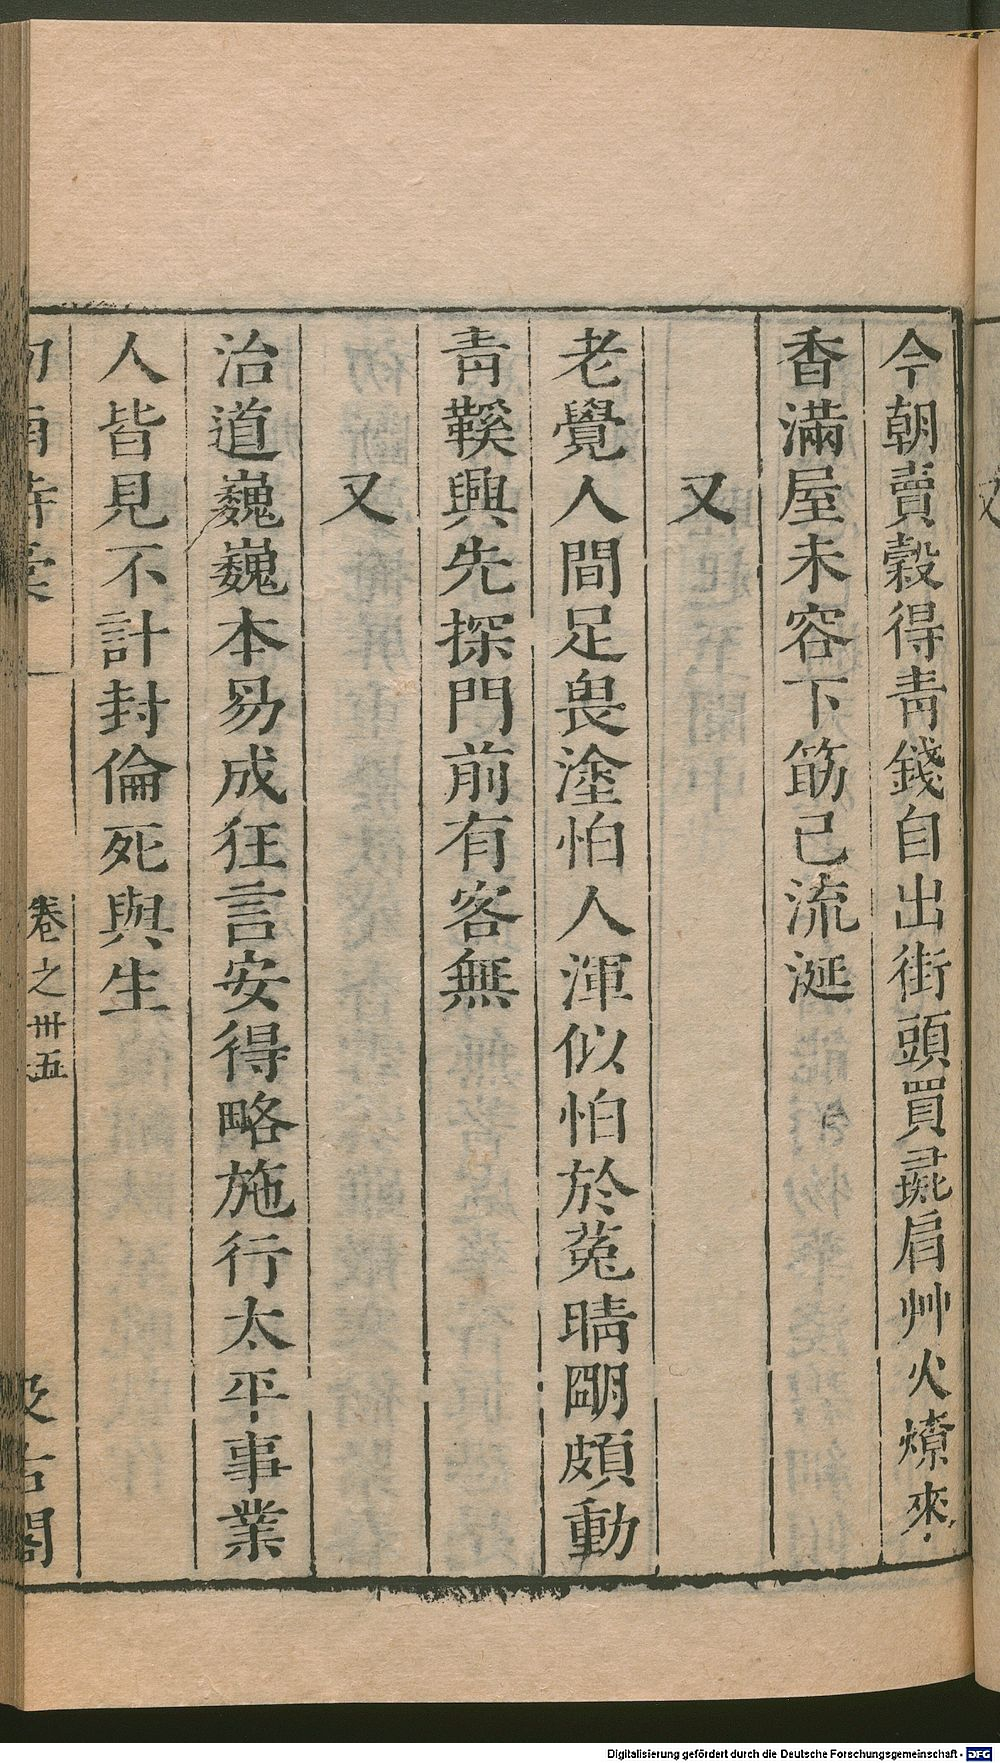 今朝賣穀得青錢自出街頭買彘肩艸火燎來
香滿屋未容下筯已流涎
又
老覺人間足畏塗怕人渾似怕於菟晴朙頗動
青鞵興先探門前有客無
又
治道巍巍本易成狂言安得略施行太平事業
人皆見不計封倫死與生
卷之卅五
汲古閣
Digitalisierung gefördert durch die Deutsche Forschungsgemeinschaft - DFG